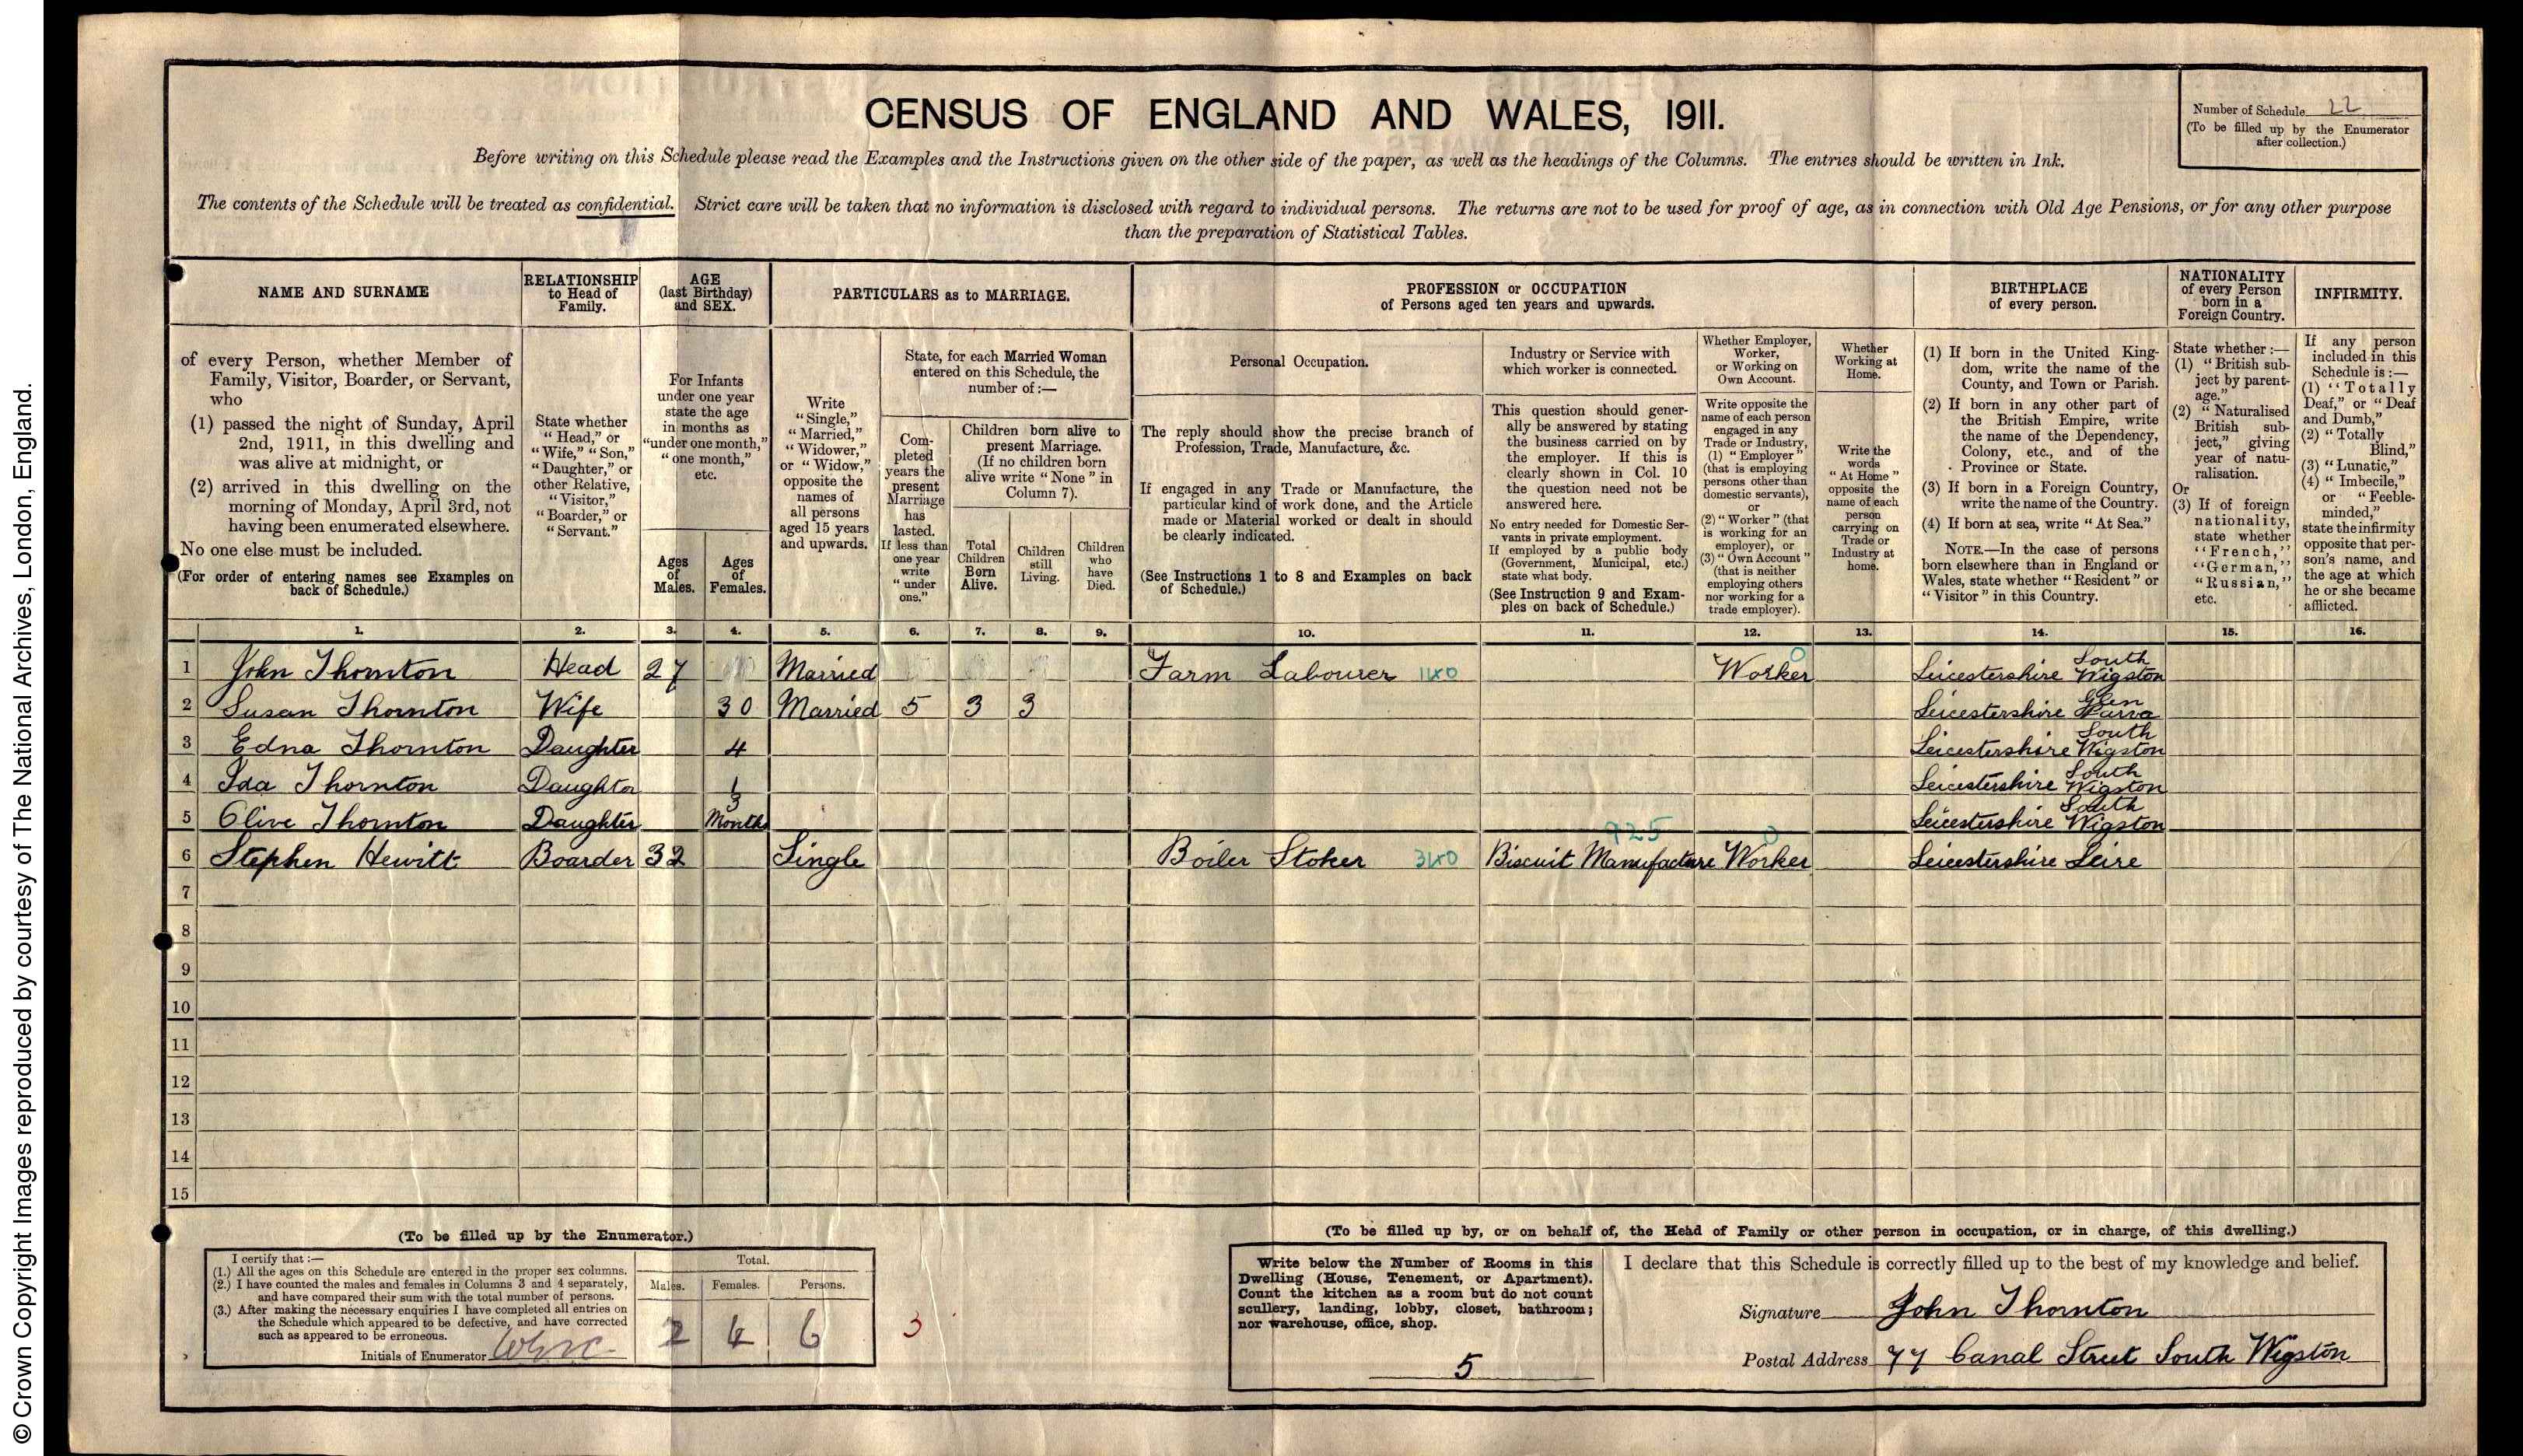 © Crown Copyright Images reproduced by courtesy of The National Archives, London, England.
CENSUS OF ENGLAND AND WALES, 1911.
Number of Schedule 22
(To be filled up by the Enumerator
after collection.)
Before writing on this Schedule please read the Examples and the Instructions given on the other side of the paper, as well as the headings of the Columns. The entries should be written in Ink.
The contents of the Schedule will be treated as confidential. Strict care will be taken that no information is disclosed with regard to individual persons. The returns are not to be used for proof of age, as in connection with Old Age Pensions, or for any other purpose
than the preparation of Statistical Tables.
NAME AND SURNAME
of every Person, whether Member of
Family, Visitor, Boarder, or Servant,
who
(1) passed the night of Sunday, April
2nd, 1911, in this dwelling and
was alive at midnight, or
(2) arrived in this dwelling on the
morning of Monday, April 3rd, not
having been enumerated elsewhere.
No one else must be included.
(For order of entering names see Examples on
back of Schedule.)
RELATIONSHIP
to Head of
Family.
State whether
"Head," or
"Wife," "Son,"
"Daughter," or
other Relative,
"Visitor,"
"Boarder," or
"Servant."
AGE
(last Birthday)
and SEX.
For Infants
under one year
state the age
in months as
"under one month,"
"one month,"
etc.
Ages
of
Males.
Ages
of
Females.
PARTICULARS as to MARRIAGE.
Write
"Single,"
"Married,"
"Widower,"
or "Widow,"
opposite the
names of
all persons
aged 15 years
and upwards.
State, for each Married Woman
entered on this Schedule, the
number of:—
Com-
pleted
years the
present
Marriage
has
lasted.
If less than
one year
write
"under
one."
Children born alive to
present Marriage.
(If no children born
alive write "None" in
Column 7).
Total
Children
Born
Alive.
Children
still
Living.
Children
who
have
Died.
PROFESSION or OCCUPATION
of Persons aged ten years and upwards.
Personal Occupation.
The reply should show the precise branch of
Profession, Trade, Manufacture, &c.
If engaged in any Trade or Manufacture, the
particular kind of work done, and the Article
made or Material worked or dealt in should
be clearly indicated.
(See Instructions 1 to 8 and Examples on back
of Schedule.)
Industry or Service with
which worker is connected.
This question should gener-
ally be answered by stating
the business carried on by
the employer. If this is
clearly shown in Col. 10
the question need not be
answered here.
No entry needed for Domestic Ser-
vants in private employment.
If employed by a public body
(Government, Municipal, etc.)
state what body.
(See Instruction 9 and Exam-
ples on back of Schedule.)
Whether Employer,
Worker,
or Working on
Own Account.
Write opposite the
name of each person
engaged in any
Trade or Industry,
(1) "Employer"
(that is employing
persons other than
domestic servants),
or
(2) "Worker" (that
is working for an
employer), or
(3) "Own Account"
(that is neither
employing others
nor working for a
trade employer).
Whether
Working at
Home.
Write the
words
"At Home"
opposite the
name of each
person
carrying on
Trade or
Industry at
home.
BIRTHPLACE
of every person.
(1) If born in the United King-
dom, write the name of the
County, and Town or Parish.
(2) If born in any other part of
the British Empire, write
the name of the Dependency,
Colony, etc., and of the
Province or State.
(3) If born in a Foreign Country,
write the name of the Country.
(4) If born at sea, write "At Sea."
NOTE.—In the case of persons
born elsewhere than in England or
Wales, state whether "Resident" or
"Visitor" in this Country.
NATIONALITY
of every Person
born in a
Foreign Country.
State whether:—
(1) "British sub-
ject by parent-
age."
(2) "Naturalised
British sub-
ject," giving
year of natu-
ralisation.
Or
(3) If of foreign
nationality,
state whether
"French,"
"German,"
"Russian,"
etc.
INFIRMITY.
If any person
included in this
Schedule is:—
(1) "Totally
Deaf," or "Deaf
and Dumb,"
(2) "Totally
Blind,"
(3) "Lunatic,"
(4) "Imbecile,"
or "Feeble-
minded,"
state the infirmity
opposite that per-
son's name, and
the age at which
he or she became
afflicted.
1. 2. 3. 4. 5. 6. 7. 8. 9. 10. 11. 12. 13. 14. 15. 16.
1 John Thornton Head 27 Married Farm Labourer Worker 0 Leicestershire South Wigston
2 Susan Thornton Wife 30 Married 5 3 3 Leicestershire Glen Parva
3 Edna Thornton Daughter 4 Leicestershire South Wigston
4 Ida Thornton Daughter 1 Leicestershire South Wigston
5 Olive Thornton Daughter 3 Months Leicestershire South Wigston
6 Stephen Hewitt Boarder 32 Single Boiler Stoker Biscuit Manufacture 925 Worker 0 Leicestershire Leire
7
8
9
10
11
12
13
14
15
(To be filled up by the Enumerator.)
I certify that:—
(1.) All the ages on this Schedule are entered in the proper sex columns.
(2.) I have counted the males and females in Columns 3 and 4 separately,
and have compared their sum with the total number of persons.
(3.) After making the necessary enquiries I have completed all entries on
the Schedule which appeared to be defective, and have corrected
such as appeared to be erroneous.
Initials of Enumerator
Total.
Males. Females. Persons.
2 4 6
3
(To be filled up by, or on behalf of, the Head of Family or other person in occupation, or in charge, of this dwelling.)
Write below the Number of Rooms in this
Dwelling (House, Tenement, or Apartment).
Count the kitchen as a room but do not count
scullery, landing, lobby, closet, bathroom;
nor warehouse, office, shop.
5
I declare that this Schedule is correctly filled up to the best of my knowledge and belief.
Signature John Thornton
Postal Address 77 Canal Street South Wigston